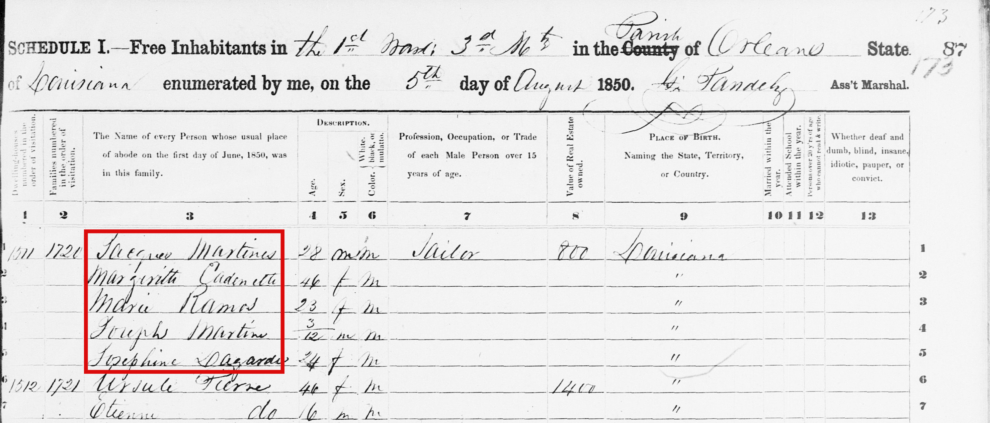 173
SCHEDULE I.—Free Inhabitants in the 1st Ward 3d in the County Parish of Orleans State 87
173
of Louisiana enumerated by me, on the 5th day of August 1850. Ass't Marshal.
Dwelling-houses numbered in the order of visitation.
Families numbered in the order of visitation.
The Name of every Person whose usual place of abode on the first day of June, 1850, was in this family.
DESCRIPTION.
Age.
Sex.
Color, White, black, or mulatto.
Profession, Occupation, or Trade of each Male Person over 15 years of age.
Value of Real Estate owned.
PLACE OF BIRTH.
Naming the State, Territory, or Country.
Married within the year.
Attended School within the year.
Persons over 20 y'rs of age who cannot read & write.
Whether deaf and dumb, blind, insane, idiotic, pauper, or convict.
1 2 3 4 5 6 7 8 9 10 11 12 13
1 1511 1720 Jacques Martines 28 m m Tailor 800 Louisiana 1
2 Margirith Cadenette 46 f m " 2
3 Marie Ramos 23 f m " 3
4 Joseph Martine 3/12 m m " 4
5 Josephine Dagarde 24 f m " 5
6 1512 1721 Ursule Pierre 46 f m 1400 " 6
7 Etienne do 16 m m " 7